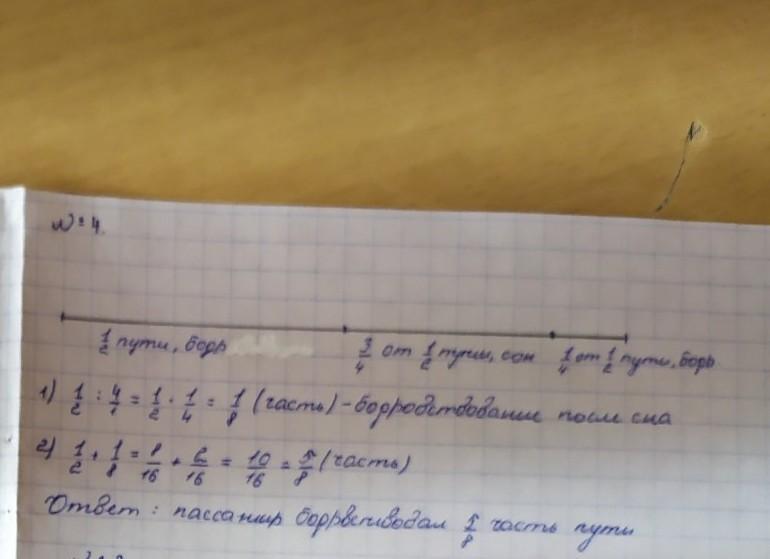 № 4.
1/2 пути, бодр 3/4 от 1/2 пути, сон 1/4 от 1/2 пути, бодр.
1) 1/2 : 4/1 = 1/2 · 1/4 = 1/8 (часть) - бодрствование после сна
2) 1/2 + 1/8 = 8/16 + 2/16 = 10/16 = 5/8 (часть)
Ответ : пассажир бодрствовал 5/8 часть пути